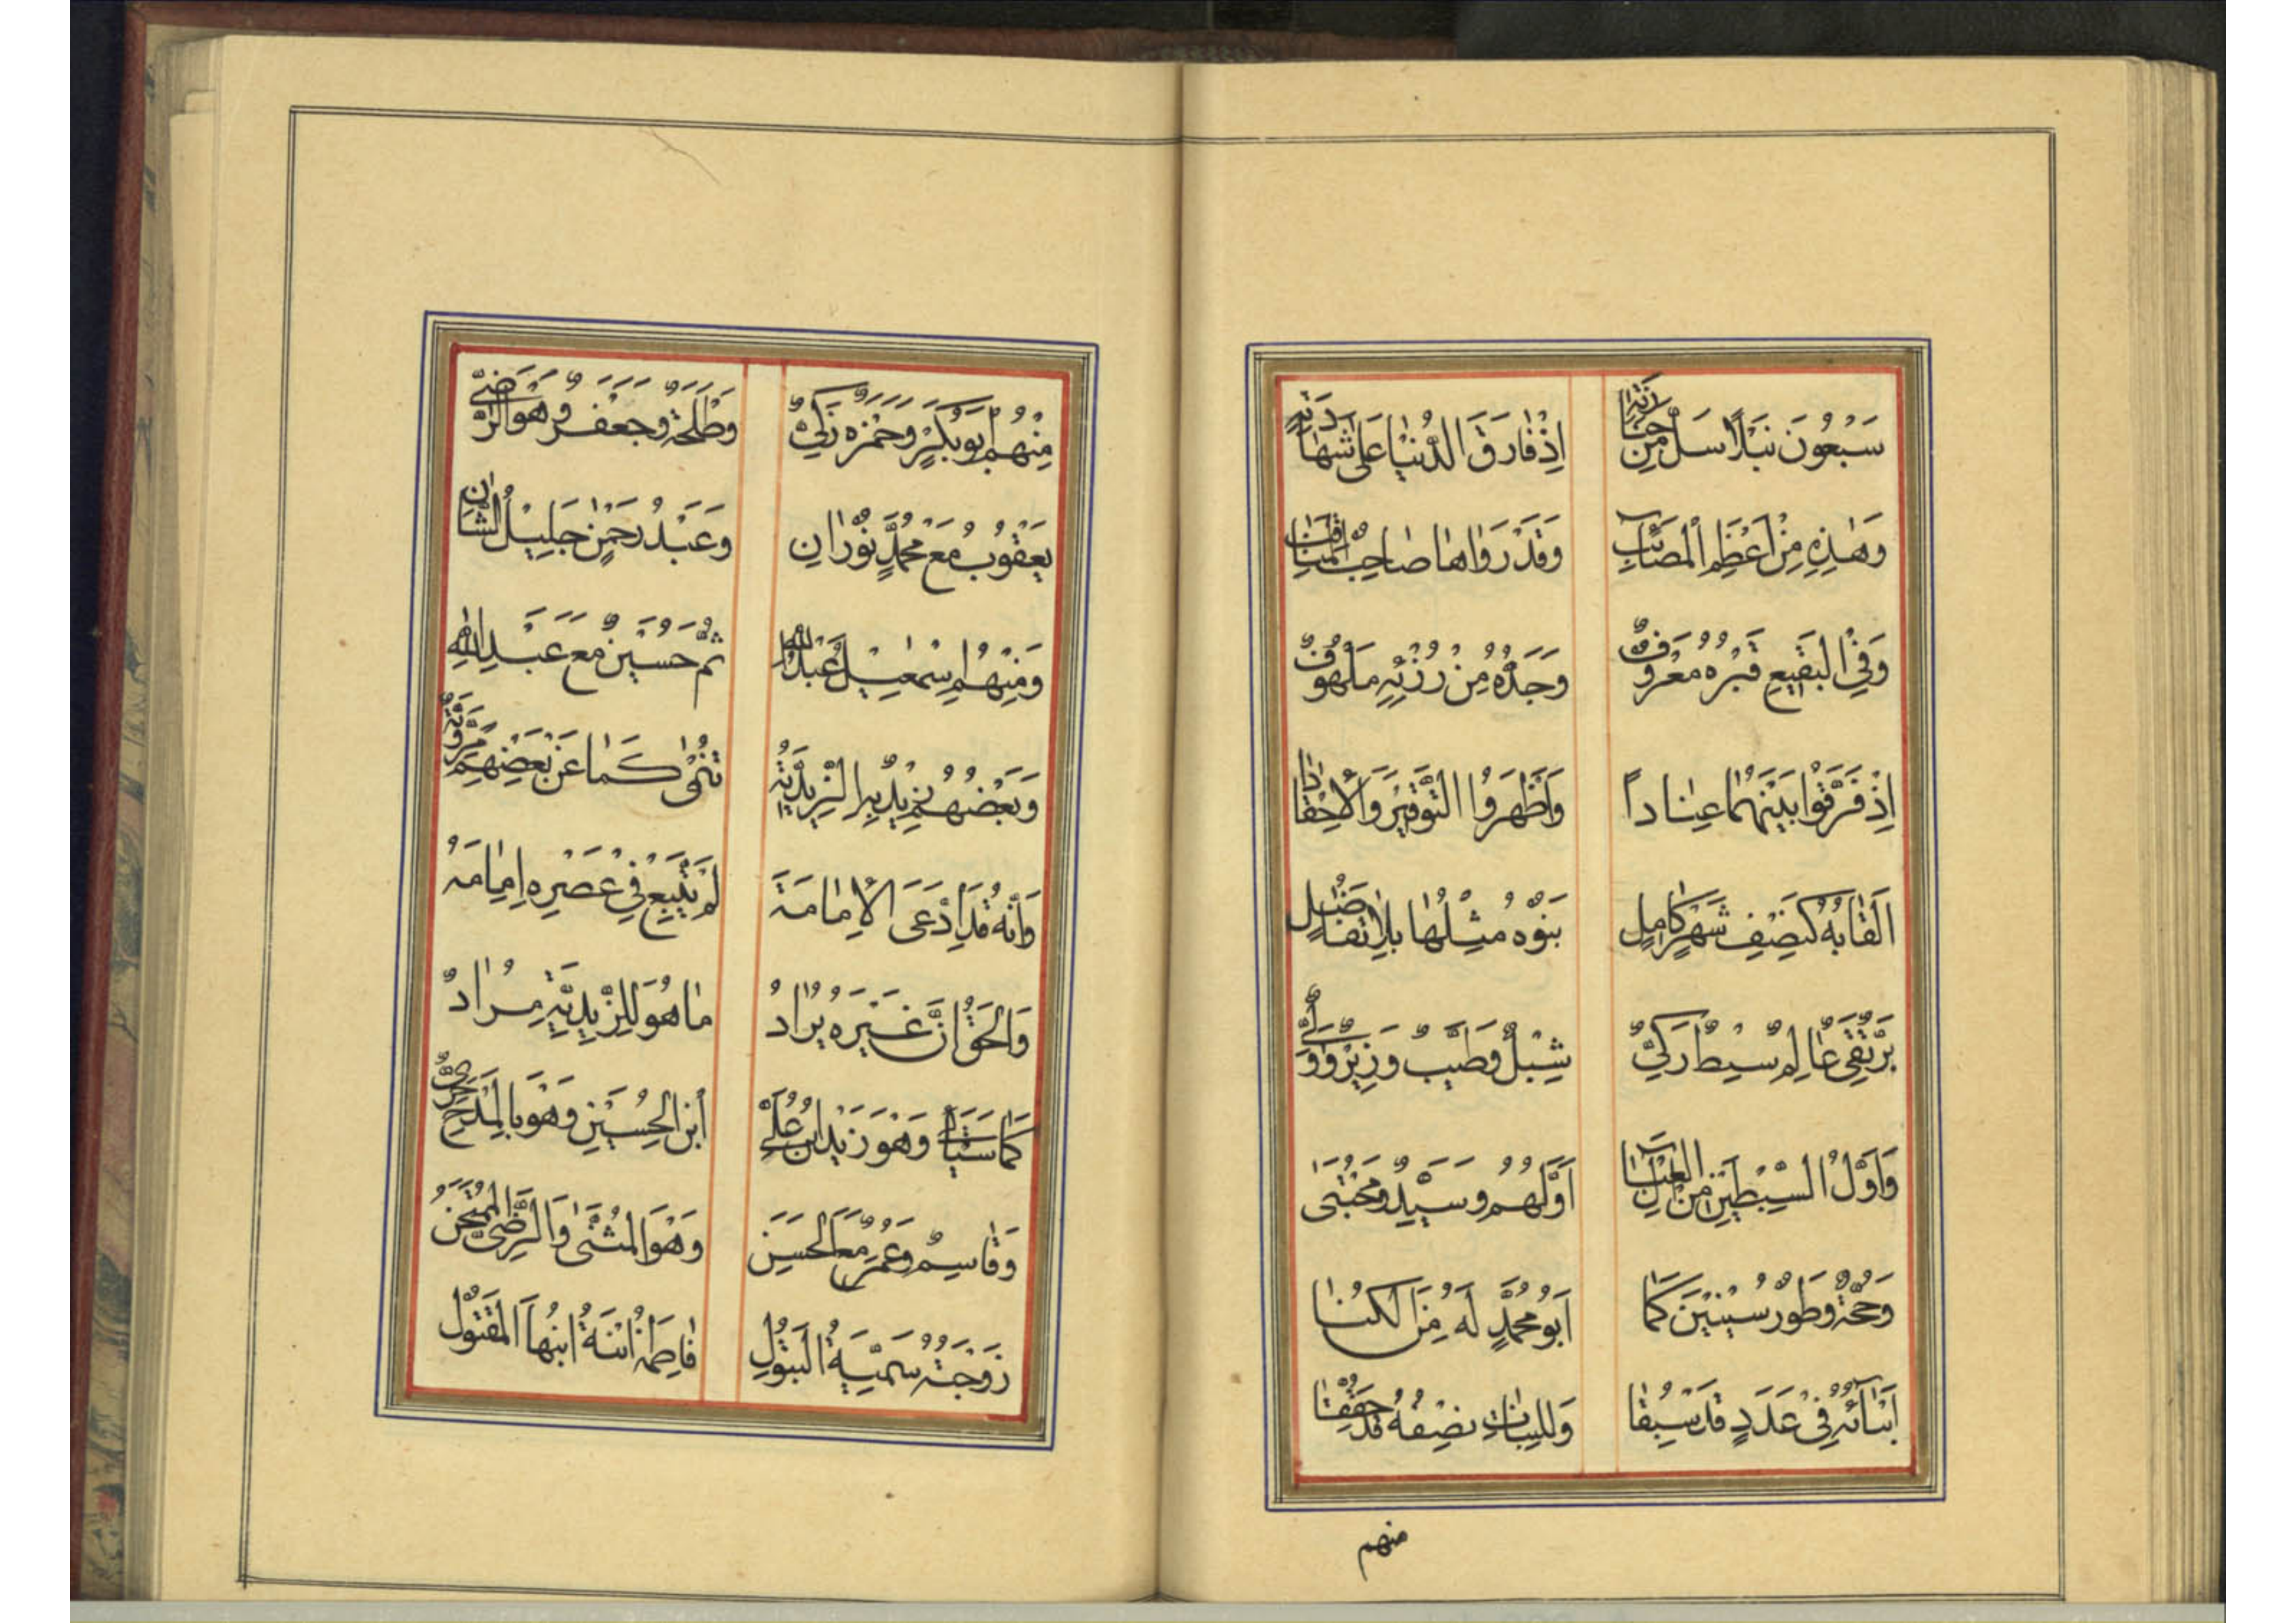 سَبْعُونَ نَبْلاً سَلَّ مِنْ جَنَازَتِهِ إِذْ فَارَقَ الدُّنْيَا عَلَى شَهَادَتِهِ
وَهٰذِهِ مِنْ اَعْظَمِ الْمَصَآئِبِ وَقَدْ رَوَاهَا صَاحِبُ الْمَنَاقِبِ
وَفِي الْبَقِيعِ قَبْرُهُ مَعْرُوفٌ وَجَدُّهُ مِنْ رُزْئِهِ مَلْهُوفٌ
اِذْ فَرَّقُوا بَيْنَهُمَا عِنَاداً وَاَظْهَرُوا التَّوْقِيرَ وَالْاَحْقَادَا
اَلْقَابُهُ كَنِصْفِ شَهْرٍ كَامِلٍ بَنُوهُ مِثْلُهَا بِلَا تَفَاضُلٍ
بَرٌّ تَقِيٌّ عَالِمٌ سِبْطٌ زَكِيٌّ شِبْلٌ وَطَيِّبٌ وَزِيرٌ وَ
وَاَوَّلُ السِّبْطَيْنِ مِنْ اَلِ الْعَبَآ اَوَّلُهُمْ وَسَيِّدٌ وَمُجْتَبَى
وَحُجَّةٌ وَطُورُ سِينِينَ كَمَا اَبُو مُحَمَّدٍ لَهُ مِنَ الْكُنَا
اَبْنَآئُهُ فِي عَدَدٍ قَدْ سَبَقَا وَلِلْبَنَاتِ نِصْفُهُ قَدْ حُقِّقَا
منهم
مِنْهُمْ اَبُو بَكْرٍ وَحَمْزَه زَكِيٌّ وَطَلْحَةٌ وَجَعْفَرٌ وَهُوَ الرَّضِيُّ
يَعْقُوبُ مَعْ مُحَمَّدٍ نُورَانِ وَعَبْدُ رَحْمٰنٍ جَلِيلُ الشَّانِ
وَمِنْهُمُ اِسْمٰعِيلُ عَبْدُ اللهِ ثُمَّ حُسَيْنٌ مَعَ عَبْدِ اللهِ
وَبَعْضُهُمْ بِزَيْدٍ الزَّيْدِيَّة تُنْمٰى كَمَا عَنْ بَعْضِهِمْ مَرْوِيَّة
وَاَنَّهُ قَدِ ادَّعَى الْاِمَامَةَ لَمْ يَتَّبِعْ فِي عَصْرِهِ اِمَامَهُ
وَالْحَقُّ اَنَّ غَيْرَهُ يُرَادُ مَا هُوَ لِلزَّيْدِيَّةِ مُرَادٌ
كَمَا سَيَأْتِي وَهُوَ زَيْدُ ابْنُ عَلِيٍّ اُبْنِ الْحُسَيْنِ وَهُوَ بِالْمَدْحِ حَرِيٌّ
وَقَاسِمٌ وَعُمَرٌ مَعَ الْحَسَنِ وَهُوَ الْمُثَنَّى وَالرَّضِيُّ الْمُمْتَحَنُ
زَوْجَتُهُ سَمِيَّةُ الْبَتُولِ فَاطِمَةُ ابْنَةُ ابْنِهَا الْمَقْتُولِ